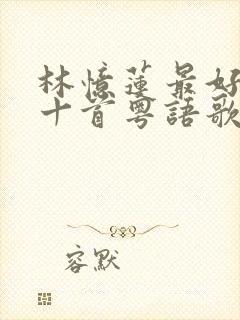 林憶蓮最好
十首粵語歌
容默